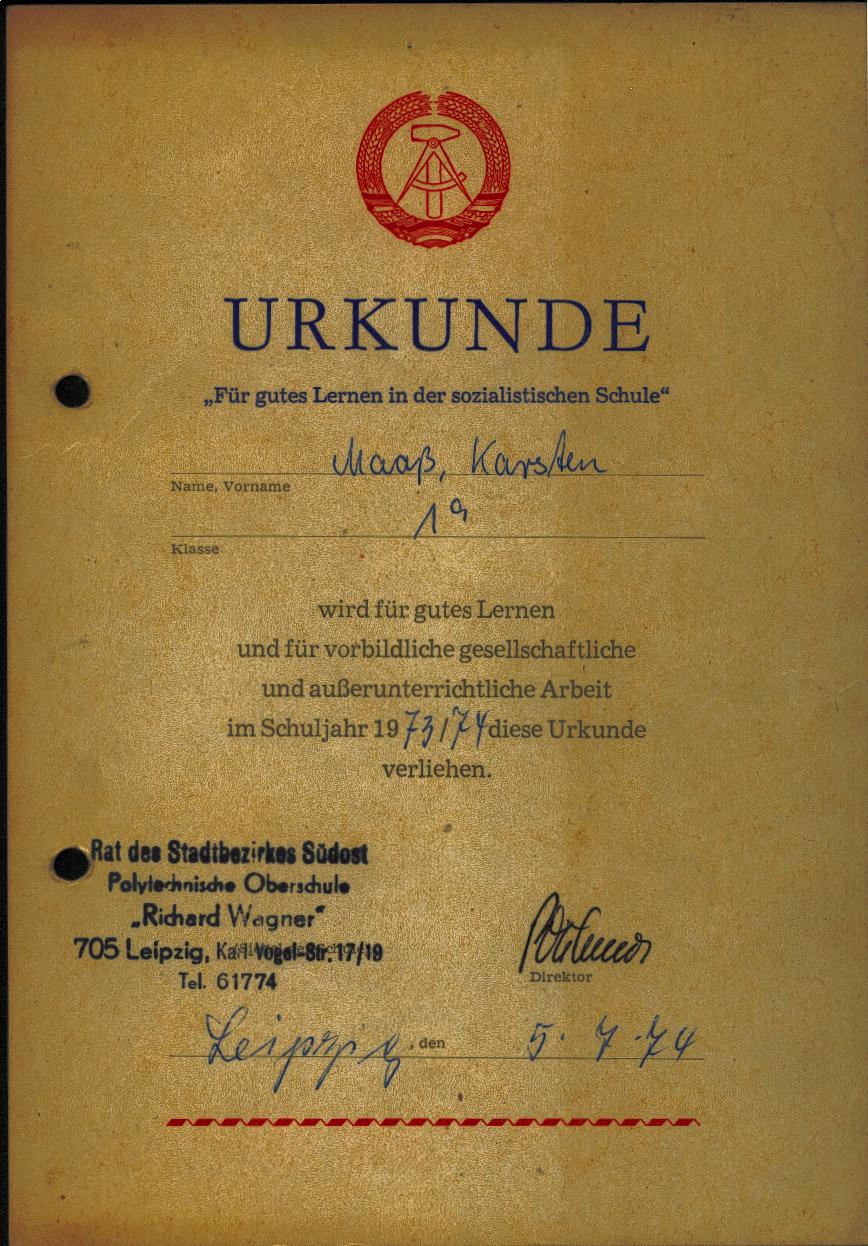 URKUNDE
„Für gutes Lernen in der sozialistischen Schule“
Maaß, Karsten
Name, Vorname
1a
Klasse
wird für gutes Lernen
und für vorbildliche gesellschaftliche
und außerunterrichtliche Arbeit
im Schuljahr 1973/74 diese Urkunde
verliehen.
Rat des Stadtbezirkes Südost
Polytechnische Oberschule
„Richard Wagner“
705 Leipzig, Karl-Vogel-Str. 17/19
Tel. 61774
Direktor
Leipzig, den 5. 7. 74